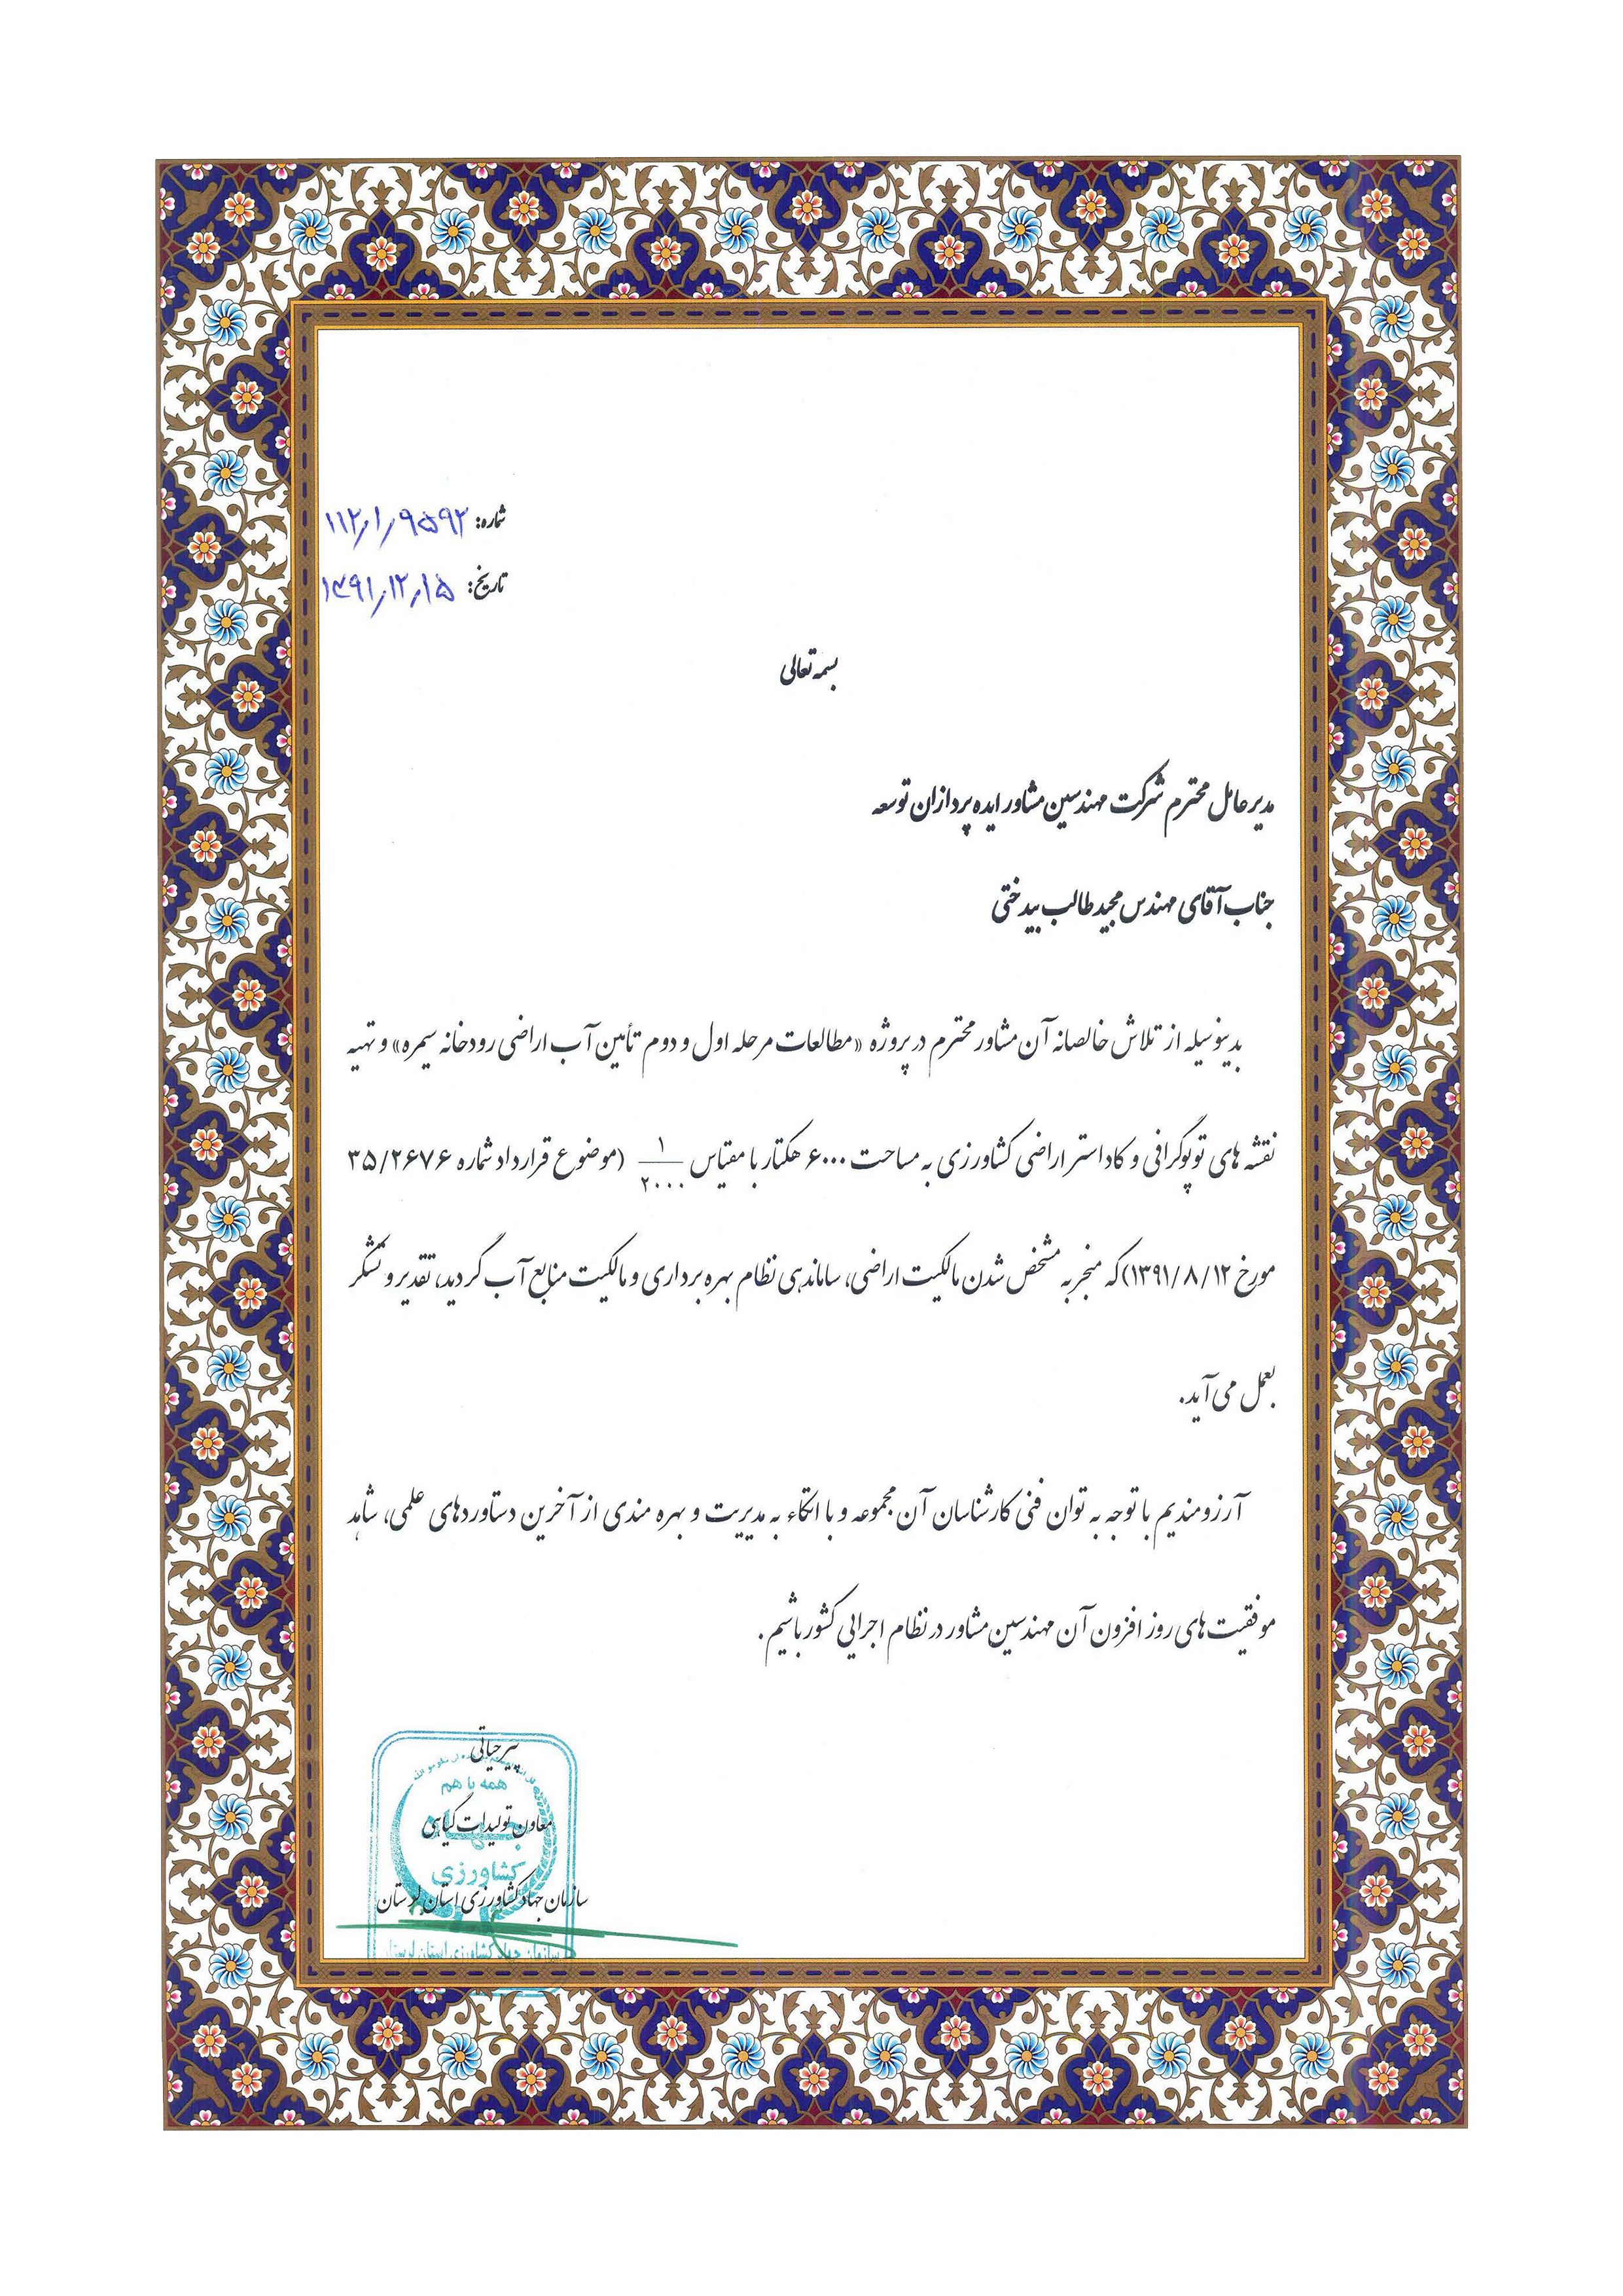 شماره: ۱۱۲/۱/۹۵۹۲
تاریخ: ۱۳۹۱/۱۲/۱۵
بسمه تعالی
مدیر عامل محترم شرکت مهندسین مشاور ایده پردازان توسعه
جناب آقای مهندس مجید طالب بیدختی
بدینوسیله از تلاش خالصانه آن مشاور محترم در پروژه «مطالعات مرحله اول و دوم تأمین آب اراضی رودخانه سیمره» و تهیه
نقشه های توپوگرافی و کاداستر اراضی کشاورزی به مساحت ۶۰۰۰ هکتار با مقیاس ۱/۲۰۰۰ (موضوع قرارداد شماره ۳۵/۲۶۷۶
مورخ ۱۳۹۱/۸/۱۲) که منجر به مشخص شدن مالکیت اراضی، ساماندهی نظام بهره برداری و مالکیت منابع آب گردید، تقدیر و تشکر
بعمل می آید.
آرزومندیم با توجه به توان فنی کارشناسان آن مجموعه و با اتکاء به مدیریت و بهره مندی از آخرین دستاوردهای علمی، شاهد
موفقیت های روز افزون آن مهندسین مشاور در نظام اجرایی کشور باشیم.
پیرحیاتی
همه با هم
معاون تولیدات گیاهی
جهاد
کشاورزی
سازمان جهاد کشاورزی استان لرستان
سازمان جهاد کشاورزی استان لرستان